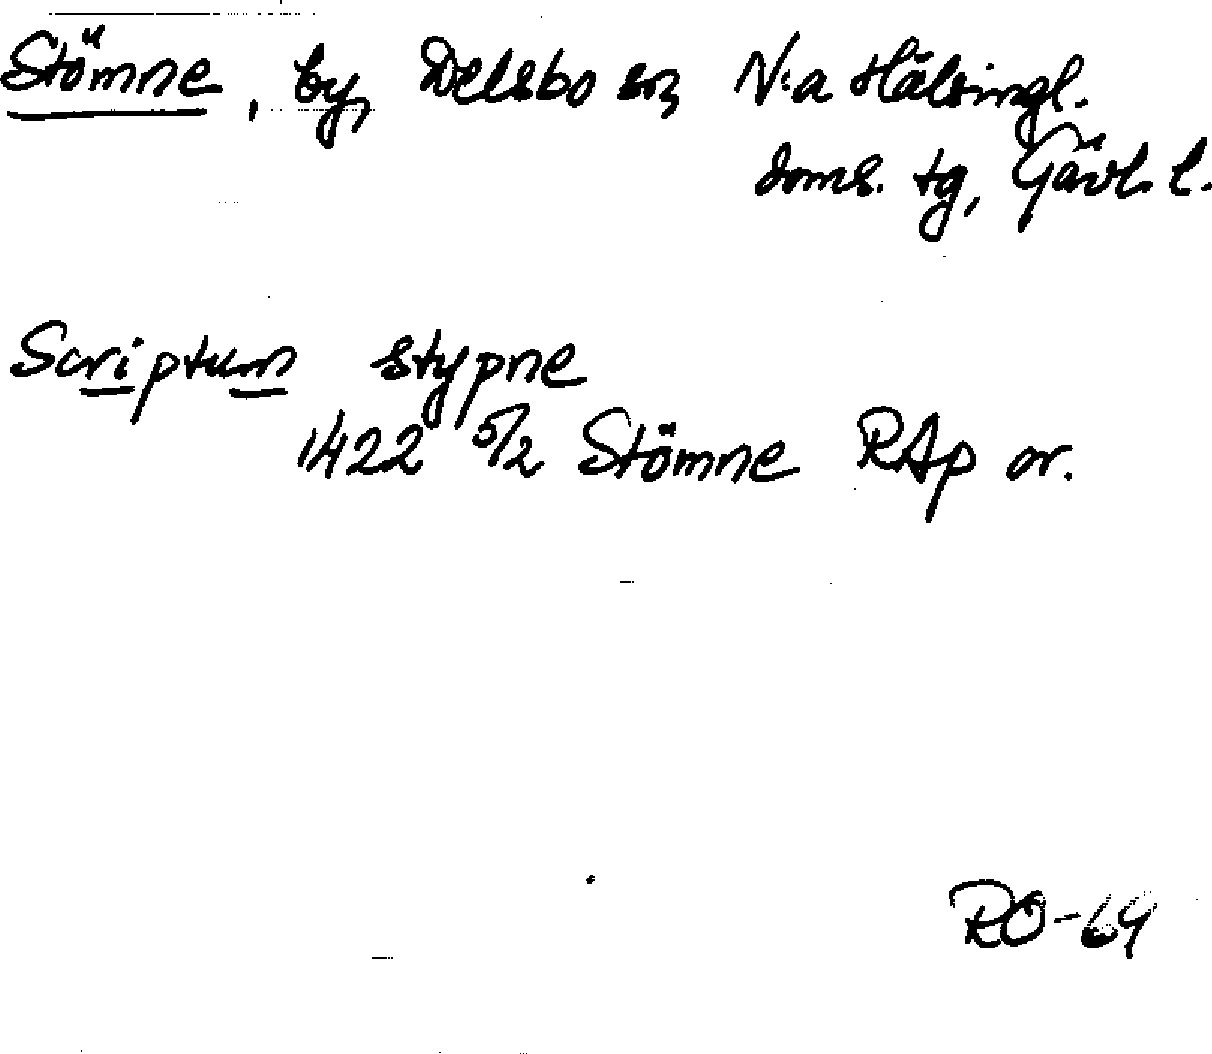 Stömne, by, Delsbo sn, N:a Hälsingl.
doms. tg, Gävl. l.
Scriptum stypne
1422 5/2 Stömne RAp or.
RO-64